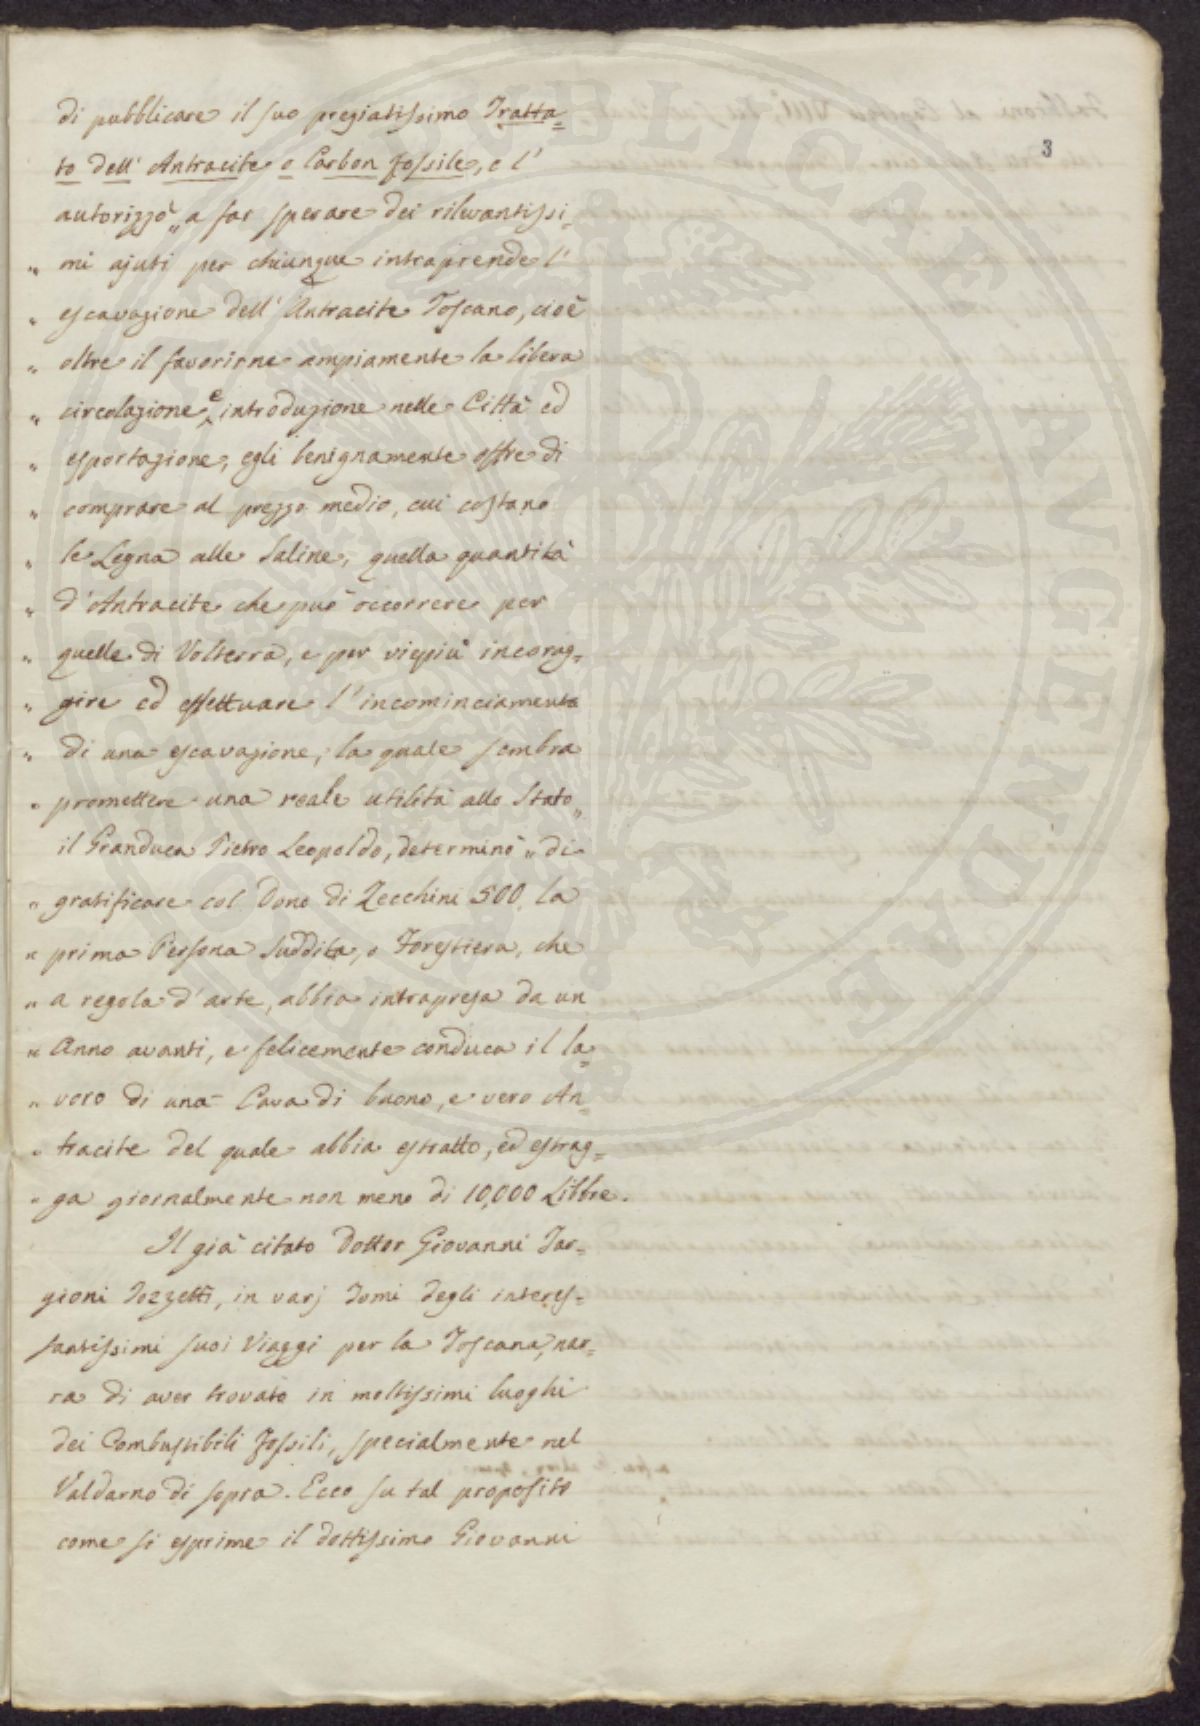 3
di pubblicare il suo pregiatissimo Tratta=
to dell' Antracite o Carbon fossile, e l'
autorizzò „a far sperare dei rilevantissi=
„ mi ajuti per chiunque intraprende l'
„ escavazione dell' Antracite Toscano, cioè
„ oltre il favorirne ampiamente la libera
„ circolazione, e introduzione nelle Città ed
„ esportazione, egli benignamente offre di
„ comprare al prezzo medio, cui costano
„ le Legna alle Saline, quella quantità
„ d'Antracite che può occorrere per
„ quelle di Volterra, e per viepiù incorag=
„ gire ed effettuare l'incominciamento
„ di una escavazione, la quale sembra
„ promettere una reale utilità allo Stato„
il Granduca Pietro Leopoldo, determinò „ di
„ gratificare col Dono di Zecchini 500. la
„ prima Persona Suddita, o Forestiera, che
„ a regola d'arte, abbia intrapresa da un
„ Anno avanti, e felicemente conduca il la=
„ voro di una Cava di buono, e vero An=
„ tracite del quale abbia estratto, ed estrag=
„ ga giornalmente non meno di 10,000 Libbre.
Il già citato Dottor Giovanni Tar=
gioni Tozzetti, in varj Tomi degli interes=
santissimi suoi Viaggi per la Toscana, nar=
ra di aver trovato in moltissimi luoghi
dei Combustibili fossili, specialmente nel
Valdarno di sopra. Ecco su tal proposito
come si esprime il dottissimo Giovanni